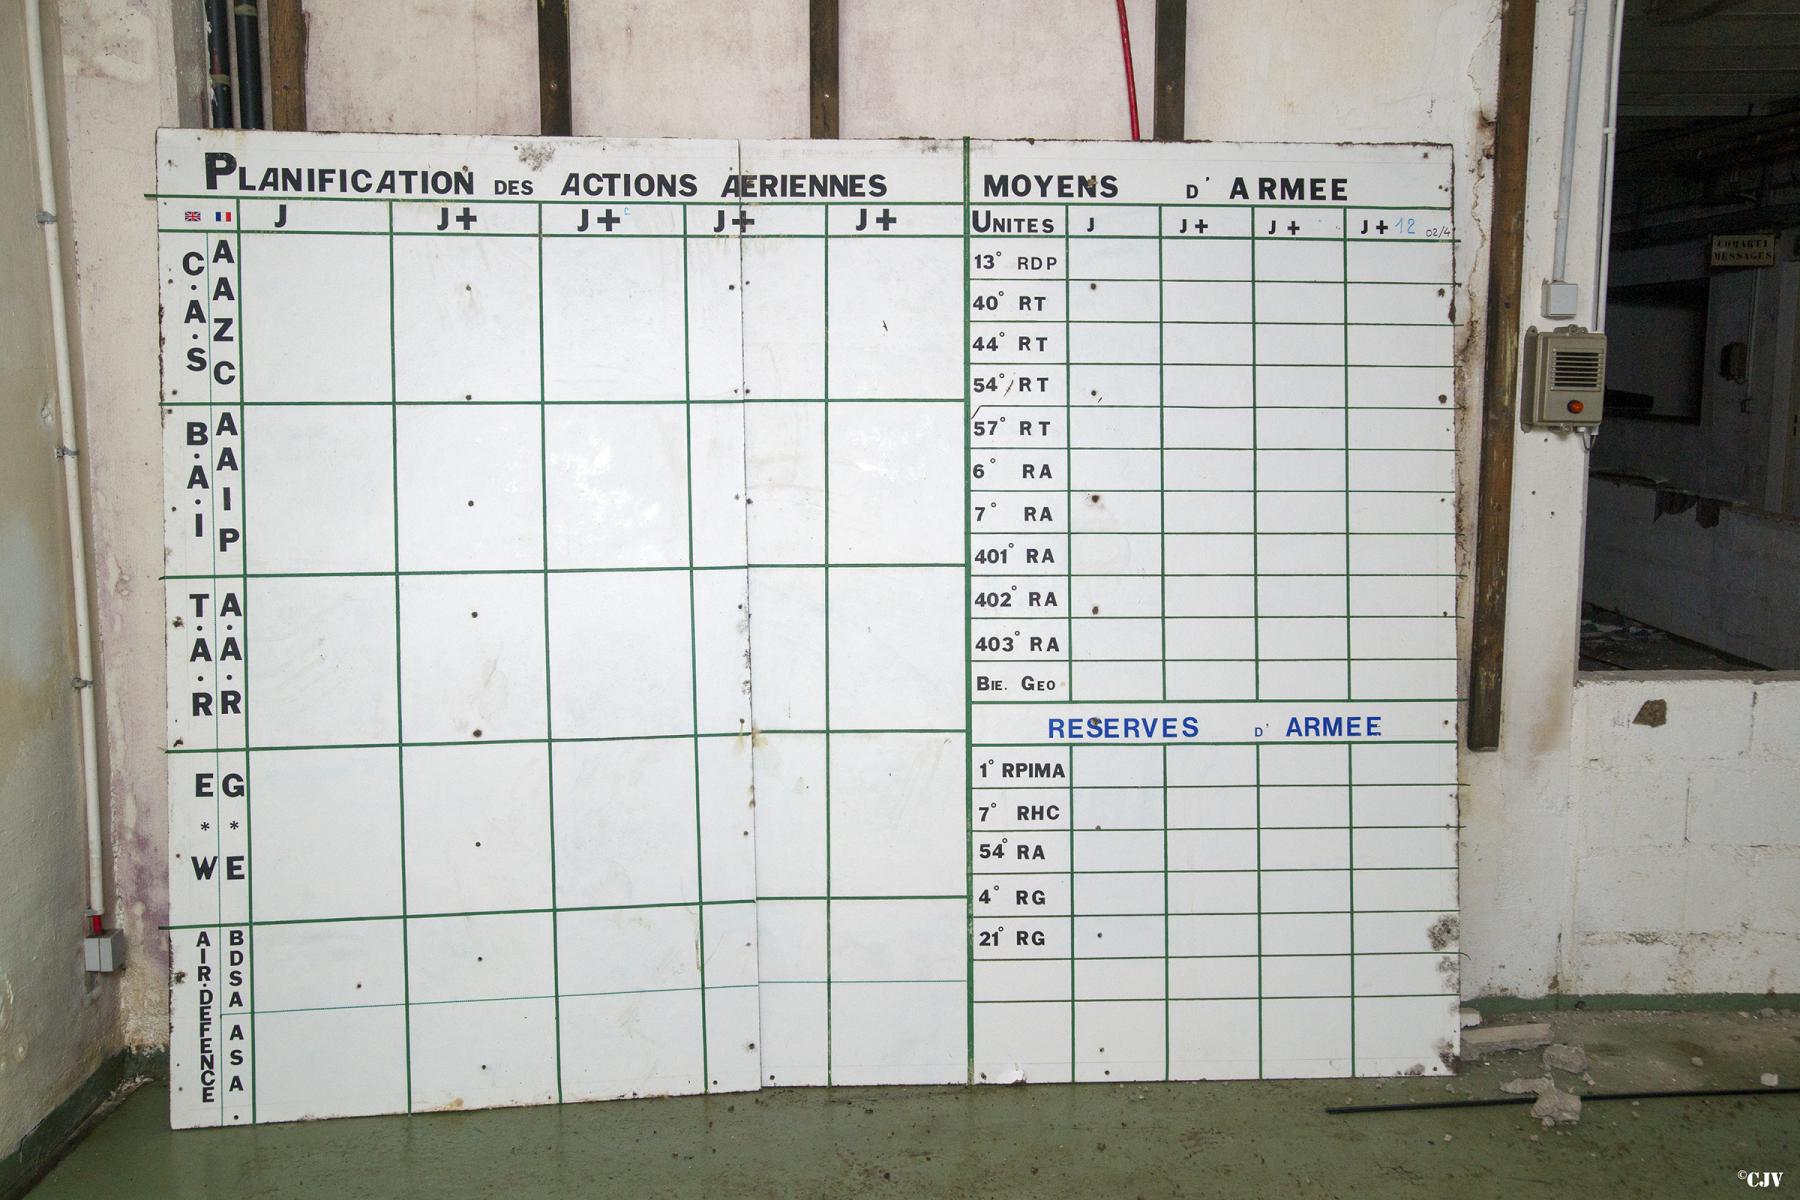 PLANIFICATION DES ACTIONS AERIENNES
J J+ J+ J+ J+
C.A.S AAZC
B.A.I AAIP
T.A.R A.A.R
E*W G*E
AIR.DEFENCE BDSA ASA.
MOYENS D' ARMEE
UNITES J J+ J+ J+ 12 02/4
13° RDP
40° RT
44° RT
54° RT
57° RT
6° RA
7° RA
401° RA
402° RA
403° RA
BIE. GEO
RESERVES D' ARMEE
1° RPIMA
7° RHC
54° RA
4° RG
21° RG
COMARTI
MESSAGES
©CJV